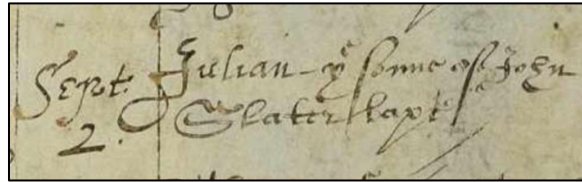 Sept. Julian yͤ sonne of John
2. Slater bapt